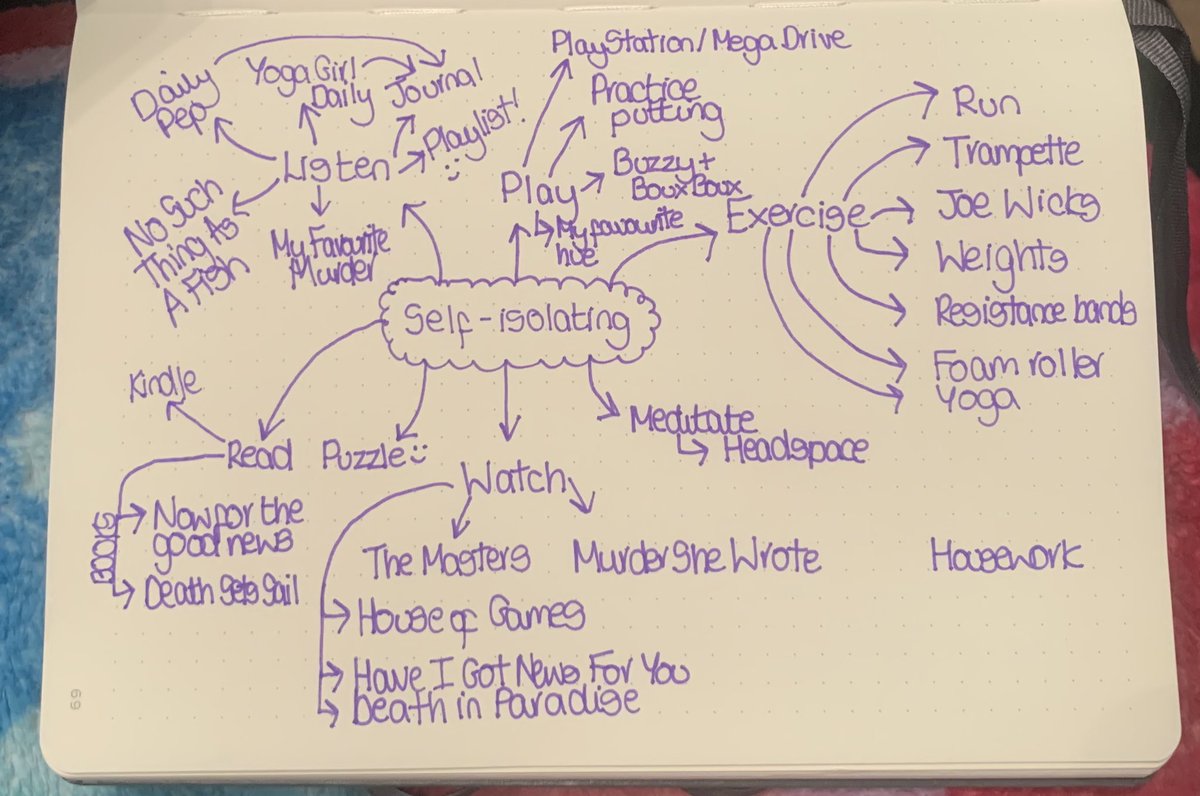 PlayStation/Mega Drive
Daily
Pep
Yoga Girl
Daily
Journal
Practice
putting
Playlist!
Listen
Play
Buzzy +
Boux Boux
My favourite
hue
Exercise
Run
Trampette
Joe Wicks
Weights
Resistance bands
Foam roller
Yoga
No Such
Thing As
A Fish
My Favourite
Murder
Self-isolating
Kindle
Read
Puzzle
Meditate
Headspace
Watch
BOOKS
Now for the
good news
Death Sets Sail
The Masters
Murder She Wrote
Housework
House of Games
Have I Got News For You
Death in Paradise
69